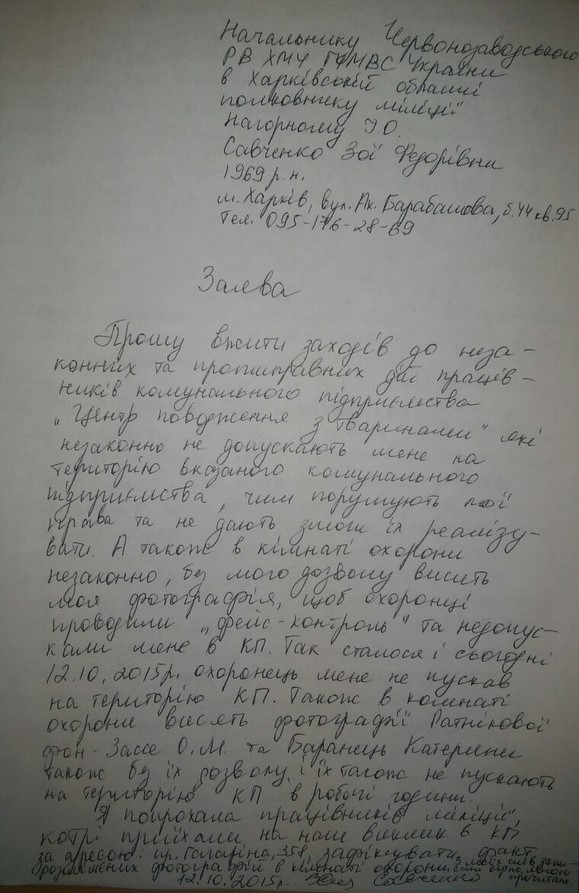 Начальнику Червонозаводського
РВ ХМУ ГУМВС України
в Харківській області
полковнику міліції
Нагорному І.О.
Савченко Зої Федорівни
1969 р.н.
м. Харків, вул. Ак. Барабашова, б. 44 кв. 95
Тел. 095-176-28-69
Заява
Прошу вжити заходів до неза-
конних та протиправних дій праців-
ників комунального підприємства
„Центр поводження з тваринами" які
незаконно не допускають мене на
територію вказаного комунального
підприємства, чим порушують мої
права та не дають змоги їх реалізу-
вати. А також в кімнаті охорони
незаконно, без мого дозволу висить
моя фотографія, щоб охоронці
проводили „фейс-контроль" та недопус-
кали мене в КП. Так сталося і сьогодні
12.10.2015р. охоронець мене не пускав
на територію КП. Також в кімнаті
охорони висять фотографії Ратнікової
фон-Зассе О.М. та Баранець Катерини
також без їх дозволу, і їх також не пускають
на територію КП в робочі години.
Я попрохала працівників міліції,
котрі приїхали на наш виклик в КП
за адресою: пр. Гагаріна, 358, зафіксувати факт
фотографій в кімнаті охорони.
З моїх слів запи-
сано вірно, мною
прочитано
12.10.2015р. Савченко